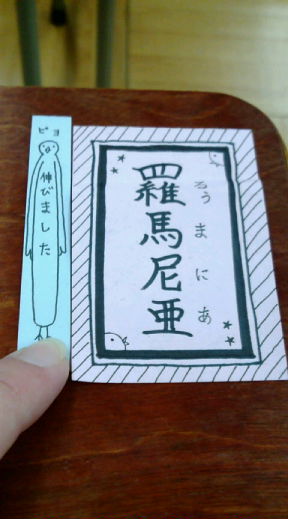 ピヨ
伸びました
羅馬尼亜
るうまにあ